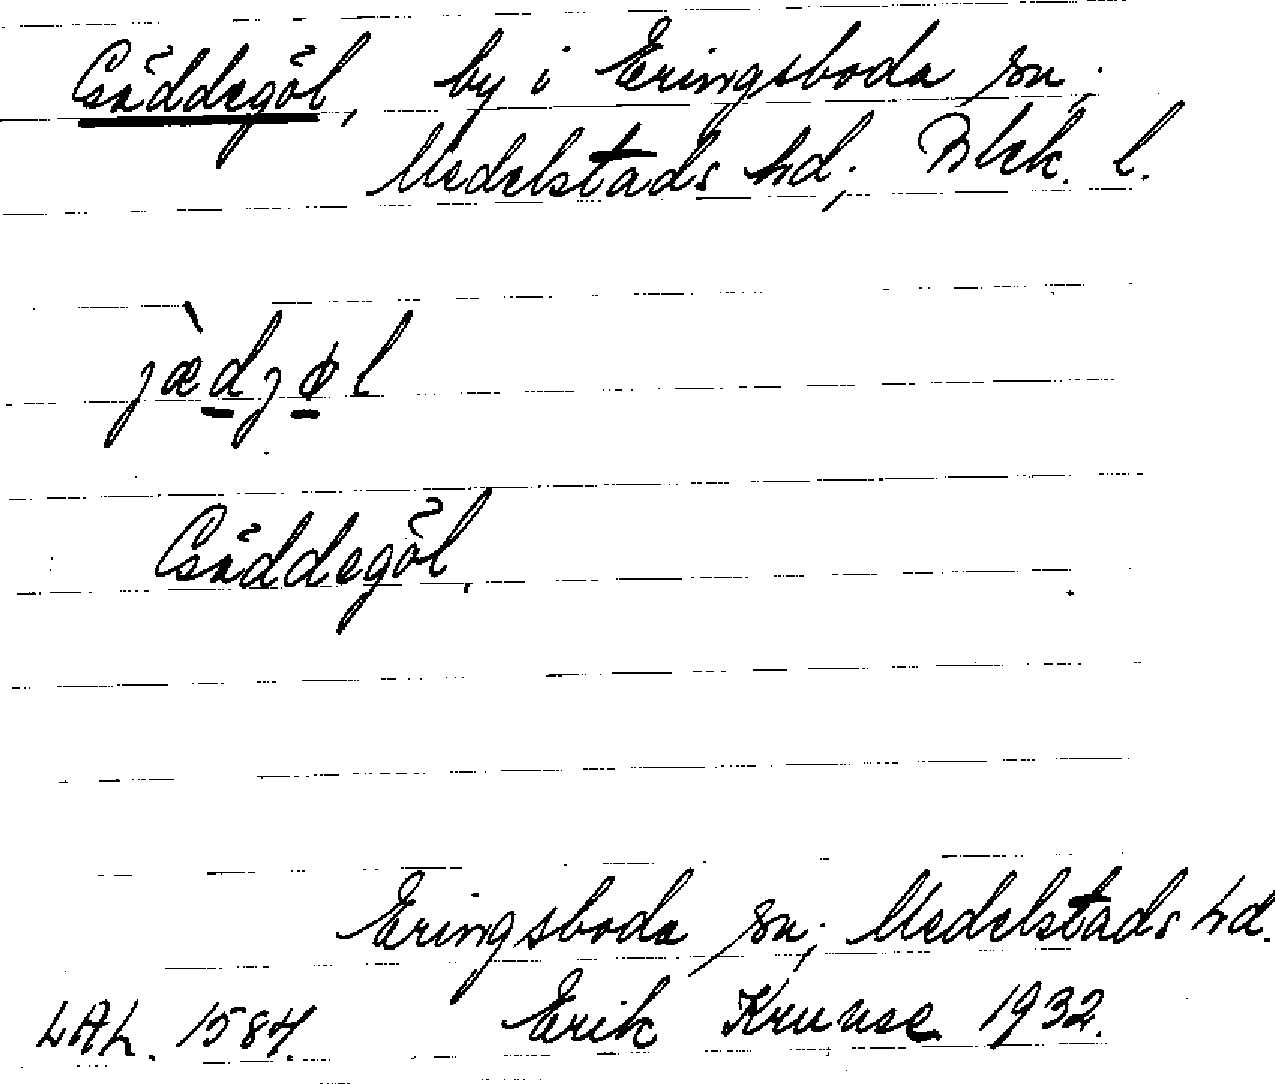 Gäddegöl, by i Eringsboda sn.,
Medelstads hd., Blek. l.
jæ̀d̠jø̠l
Gäddegöl.
Eringsboda sn., Medelstads hd.
LAL. 1584. Erik Kruuse 1932.